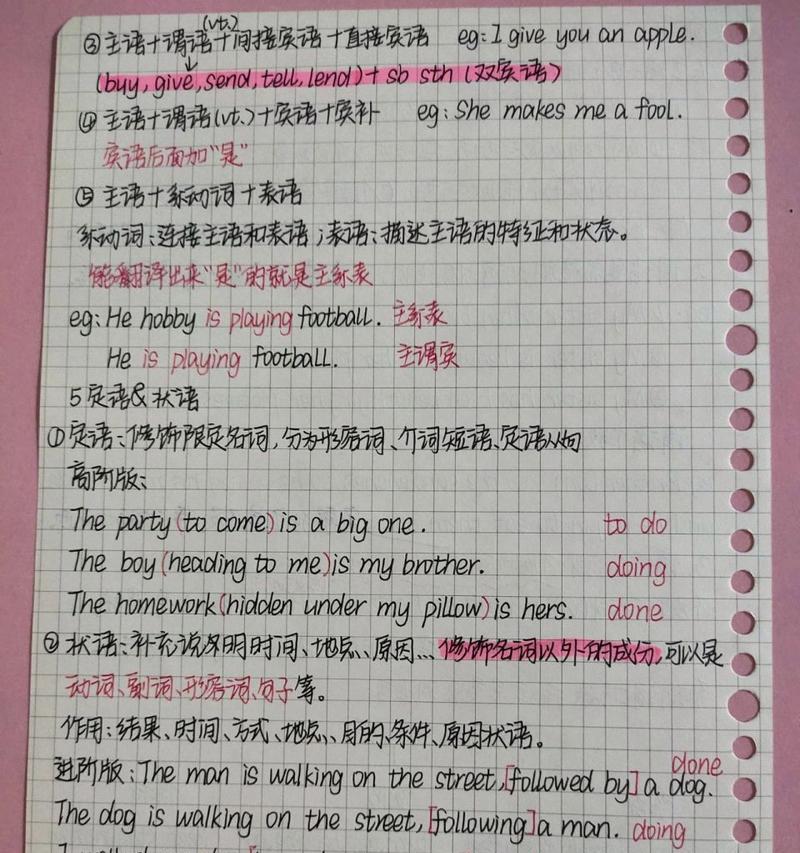 (vt.)
③主语+谓语+间接宾语+直接宾语 eg: I give you an apple.
(buy, give, send, tell, lend) + sb sth (双宾语)
④ 主语+谓语(vt.)+宾语+宾补 eg: She makes me a fool.
宾语后面加"是"
⑤ 主语+系动词+表语
系动词:连接主语和表语;表语:描述主语的特征和状态。
能翻译出来"是"的就是主系表
eg: He hobby is playing football. 主系表
He is playing football. 主谓宾
5 定语&状语
①定语:修饰限定名词,分为形容词、介词短语、定语从句
高阶版:
The party (to come) is a big one. to do
The boy (heading to me) is my brother. doing
The homework (hidden under my pillow) is hers. done
② 状语:补充说明时间、地点、原因... 修饰名词以外的成分,可以是
动词、副词、形容词、句子等。
作用:结果、时间、方式、地点、目的、条件、原因状语。
进阶版: The man is walking on the street, [followed by] a dog. done
The dog is walking on the street, [following] a man. doing